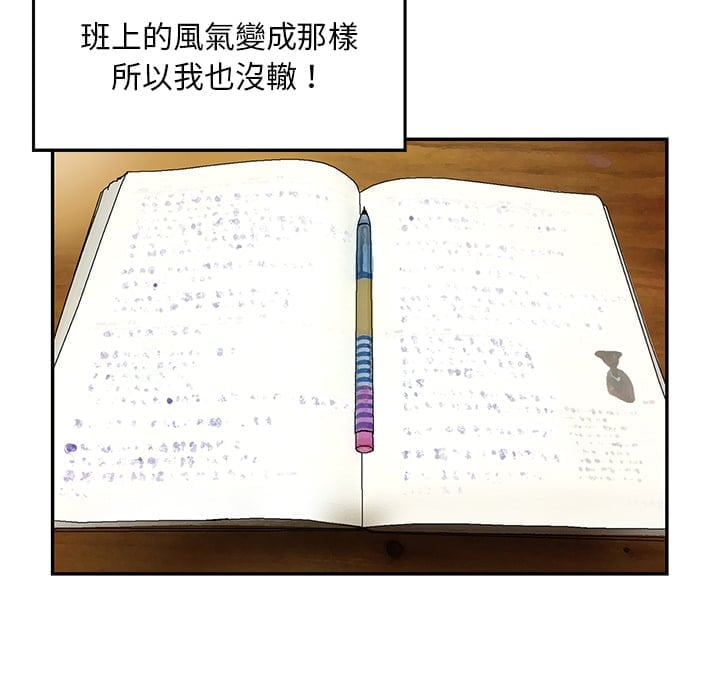 班上的風氣變成那樣
所以我也沒轍！